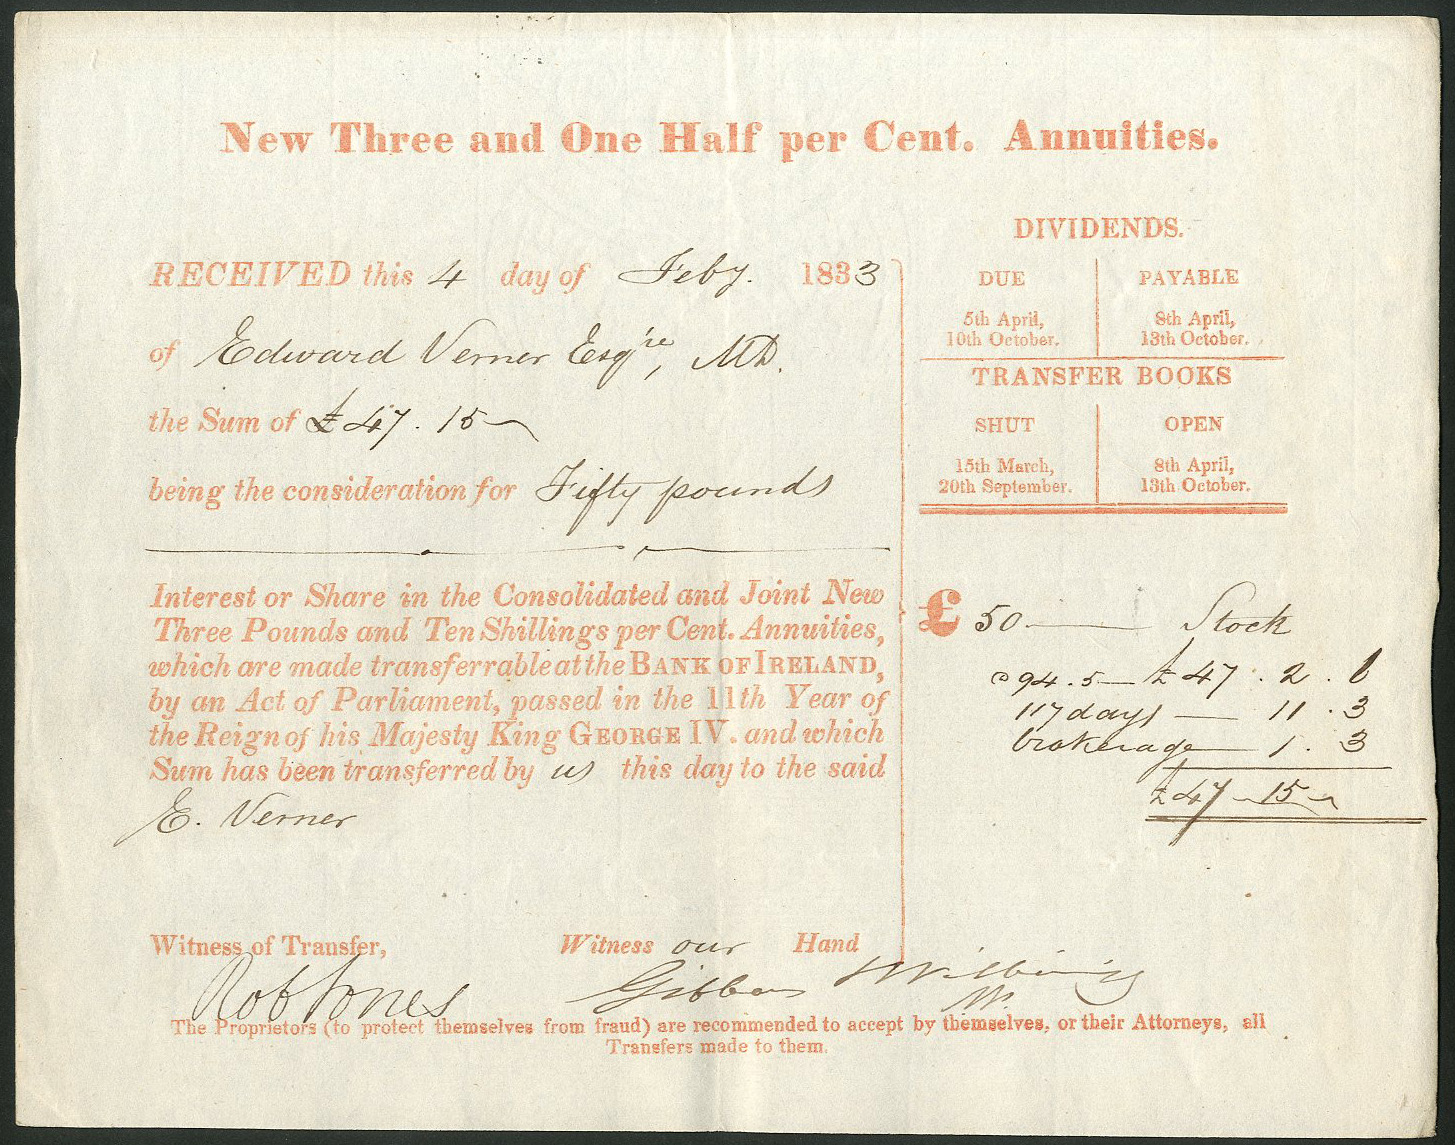 New Three and One Half per Cent. Annuities.
RECEIVED this 4 day of Feby. 1833
of Edward Verner Esqre, MD.
the Sum of £47. 15
being the consideration for Fifty pounds
Interest or Share in the Consolidated and Joint New
Three Pounds and Ten Shillings per Cent. Annuities,
which are made transferrable at the BANK OF IRELAND,
by an Act of Parliament, passed in the 11th Year of
the Reign of his Majesty King GEORGE IV. and which
Sum has been transferred by us this day to the said
E. Verner
Witness of Transfer,
Rob Jones
Witness our Hand
Gibbons
DIVIDENDS.
DUE PAYABLE
5th April, 8th April,
10th October. 13th October.
TRANSFER BOOKS
SHUT OPEN
15th March, 8th April,
20th September. 13th October.
£ 50 Stock
@ 94.5 £47 . 2 . 6
117 days 11 . 3
brokerage 1 . 3
£47 15
The Proprietors (to protect themselves from fraud) are recommended to accept by themselves, or their Attorneys, all
Transfers made to them.